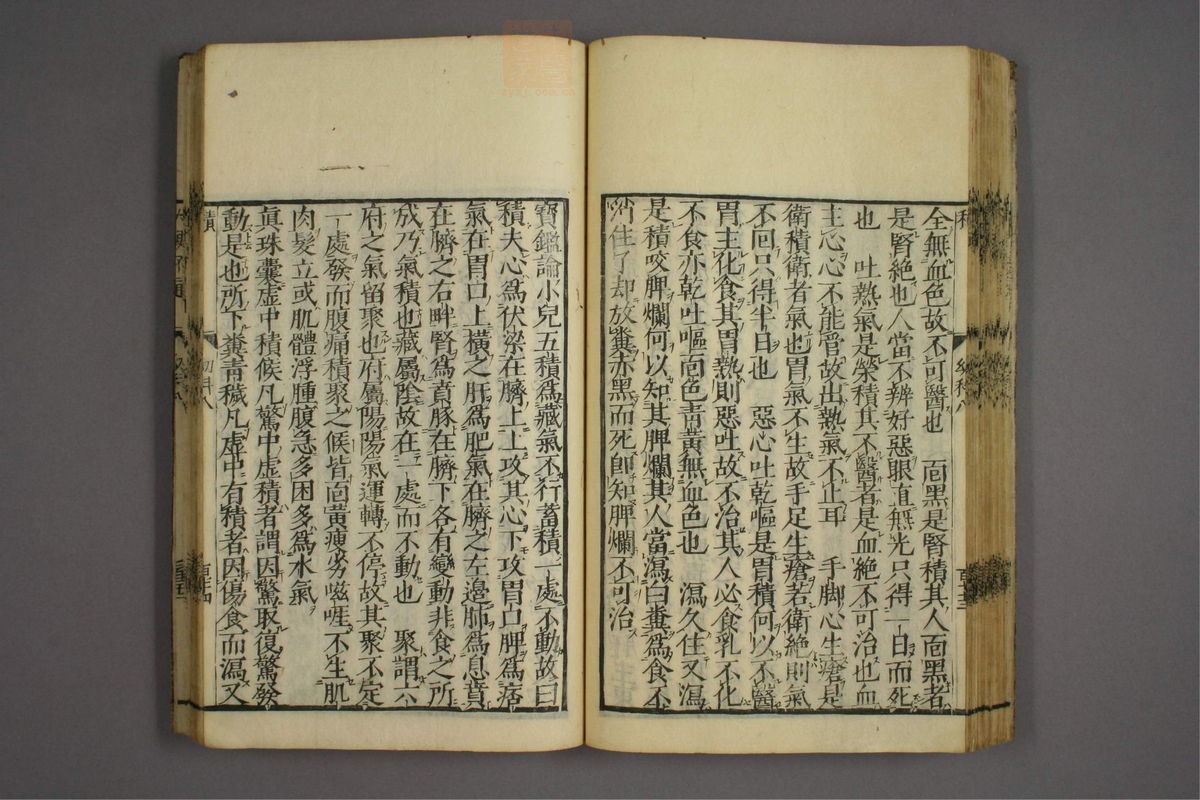 全無血色故不可醫也　面黑是腎積其人面黑者
是腎絶也人當不辨好惡眼直無光只得一日而死
也　吐熱氣是榮積其不醫者是血絶不可治也血
主心心不能管故出熱氣不止耳　手脚心生瘡是
衛積衛者氣也胃氣不生故手足生瘡若衛絶則氣
不回只得半日也　惡心吐乾嘔是胃積何以不醫
胃主化食其胃熱則惡吐故不治其人必食乳不化
不食亦乾吐嘔面色青黄無血色也　瀉久住又瀉
是積咬脾爛何以知其脾爛其人當瀉白糞爲食不
消住了却放糞赤黑而死即知脾爛不可治
寶鑑論小兒五積爲藏氣不行蓄積一處不動故曰
積夫心爲伏梁在臍上上攻其心下攻胃口脾爲痞
氣在胃口上橫之肝爲肥氣在臍之左邊肺爲息賁
在臍之右畔腎爲賁豚在臍下各有變動非食之所
成乃氣積也藏屬陰故在一處而不動也　聚謂六
府之氣留聚也府屬陽陽氣運轉不停故其聚不定
一處發而腹痛積聚之候皆面黄瘦劣嗞啀不生肌
肉髮立或肌體浮腫腹急多困多爲水氣
眞珠囊虛中積候凡驚中虛積者謂因驚取復驚發
動是也所下糞青穢凡虛中有積者因傷食而瀉又
積